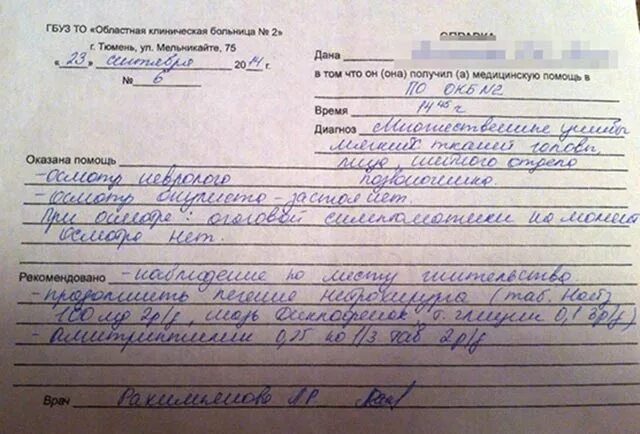 ГБУЗ ТО «Областная клиническая больница № 2»
г. Тюмень, ул. Мельникайте, 75
« 23 » сентября 2014 г.
№ 6
СПРАВКА
Дана
в том что он (она) получил (а) медицинскую помощь в
ПО ОКБ№2
Время 14 45 ч
Диагноз Множественные ушибы
мягких тканей головы,
лица, шейного отдела
позвоночника.
Оказана помощь
- осмотр невролога
- осмотр окулиста - застоя нет.
При осмотре: очаговой симптоматики на момент
осмотра нет.
Рекомендовано - наблюдение по месту жительства
- продолжить лечение нейрохирурга (таб. Найз
100 мг 2р/д, мазь, т. глицин 0,1 3р/д)
- Амитриптилин 0,25 по 1/3 таб 2р/д
Врач